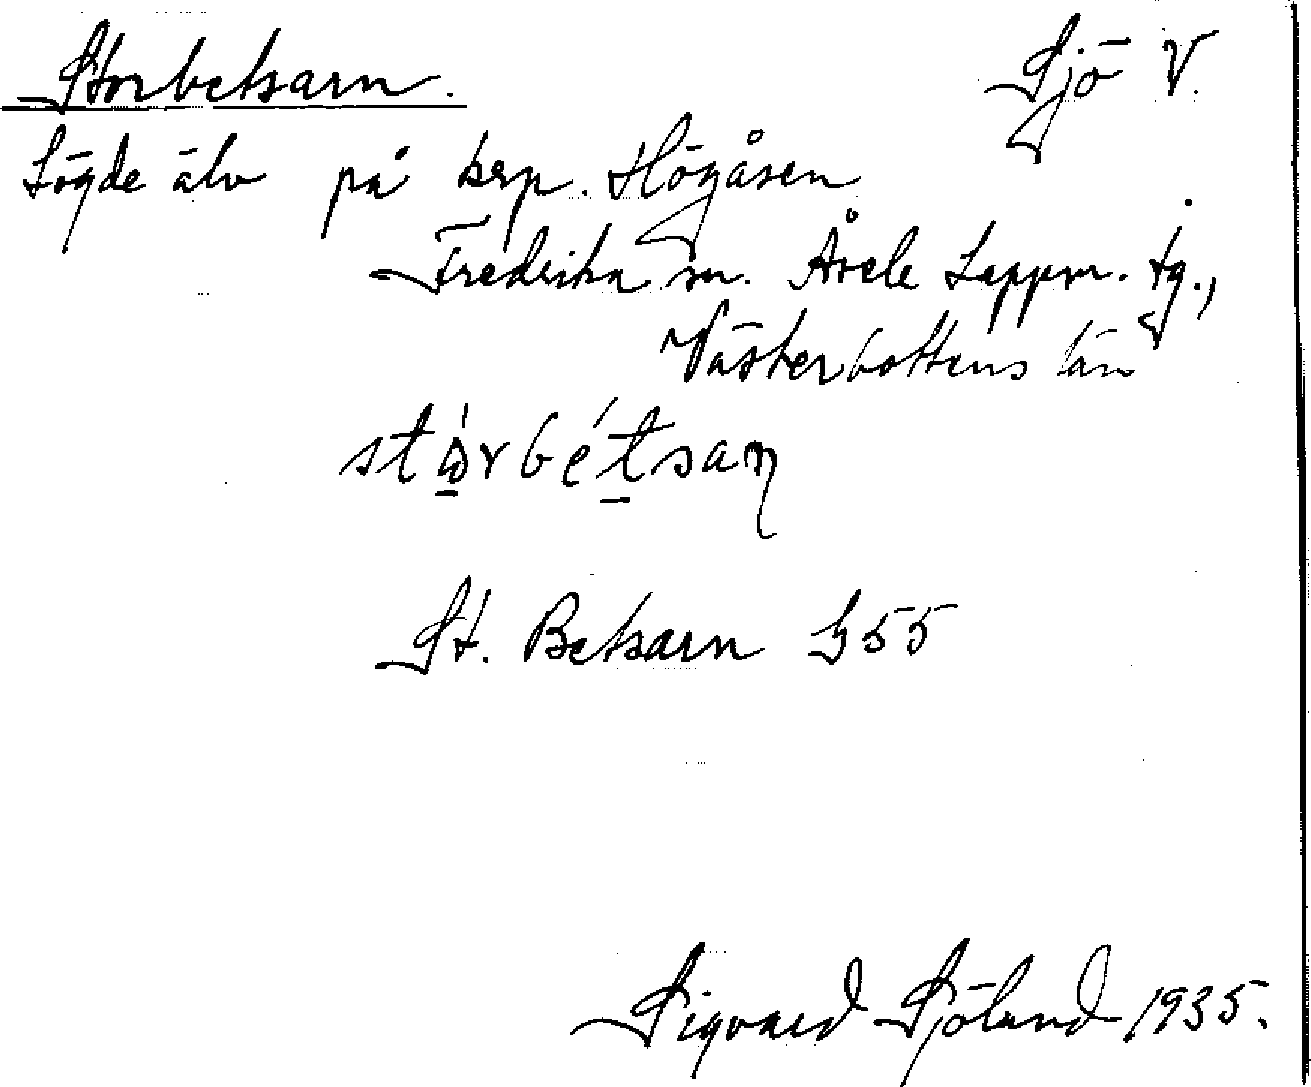 Storbetsarn. Sjö V.
Lögde älv på krp. Högåsen
Fredrika sn. Åsele Lappm. tg.,
Västerbottens län
stǫ̀rbét̠saɳ
St. Betsarn G55
Sigvard Sjöland 1935.